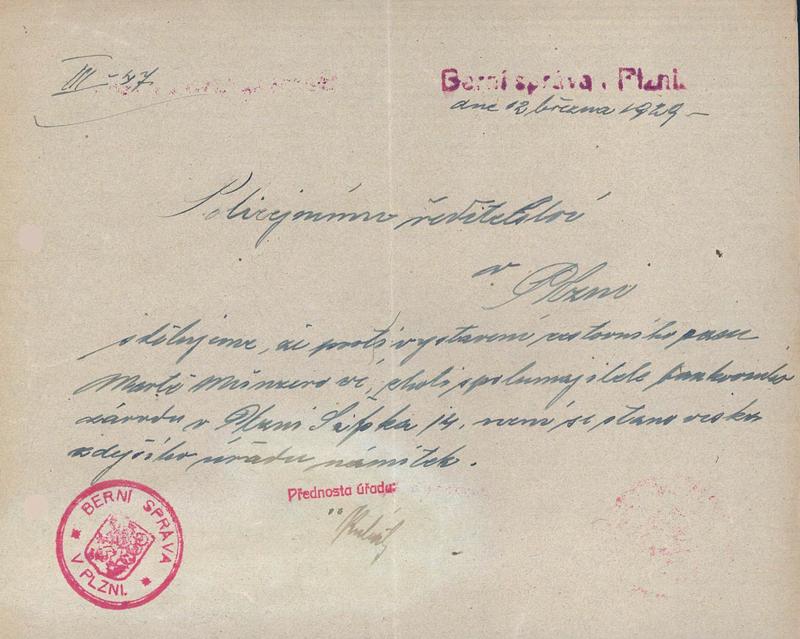 III - 47
Berní správa v Plzni.
dne 12 března 1929 -
Policejnímu ředitelství
v Plzni
sdělujeme, že proti vystavení cestovního pasu
Martě Münzerové, choti spolumajitele bankovního
závodu v Plzni 14, není se stanoviska
zdejšího úřadu námitek.
Přednosta úřadu:
BERNÍ SPRÁVA
V PLZNI.